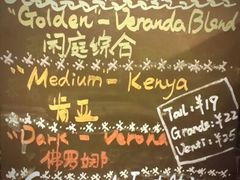 "Golden - Veranda Blend
闲庭综合
"Medium" - Kenya
肯亚
"Dark - Verona
佛罗娜
Tall: ¥19
Grande: ¥22
Venti: ¥25